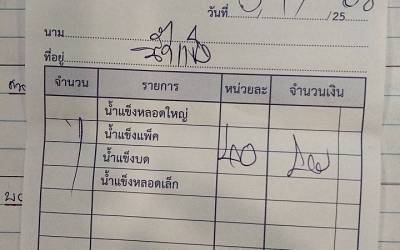 วันที่ / /25
นาม น้ำแข็ง
ที่อยู่
จำนวน รายการ หน่วยละ จำนวนเงิน
น้ำแข็งหลอดใหญ่
น้ำแข็งแพ็ค
1 น้ำแข็งบด 40 40
น้ำแข็งหลอดเล็ก